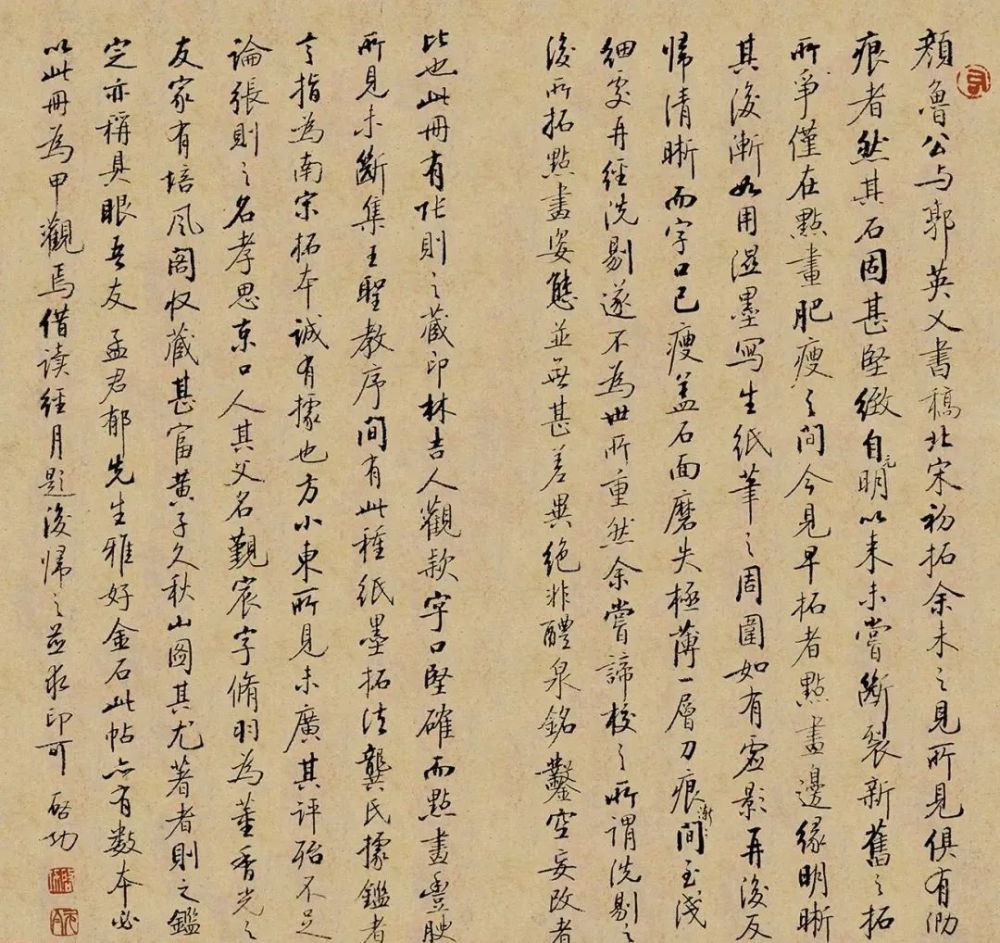 顏魯公与郭英乂書稿北宋初拓余未之見所見俱有泐
痕者然其石固甚堅緻自元明以来未嘗斷裂新舊之拓
所爭僅在點畫肥瘦之間今見早拓者點畫邊緣明晰
其後漸如用濕墨寫生紙筆之周圍如有虛影再後反
歸清晰而字口已瘦盖石面磨失極薄一層刀痕漸間至浅
細変再經洗剔遂不為世所重然余嘗諦校之所謂洗剔之
後所拓點畫姿態並無甚差異絕非醴泉銘鑿空妄改者
比也此冊有張則之藏印林吉人觀款字口堅確而點畫豐腴
所見未斷集王聖教序間有此種紙墨拓法龔氏據鑑者
言指為南宋拓本誠有據也方小東所見未廣其評殆不足
論張則之名孝思京口人其父名覲宸字脩羽為董香光之
友家有培風閣収藏甚富黄子久秋山圖其尤著者則之鑑
定亦稱具眼吾友孟君郁先生雅好金石此帖亦有数本必
以此冊為甲觀焉借读經月題後歸之並求印可 啓功